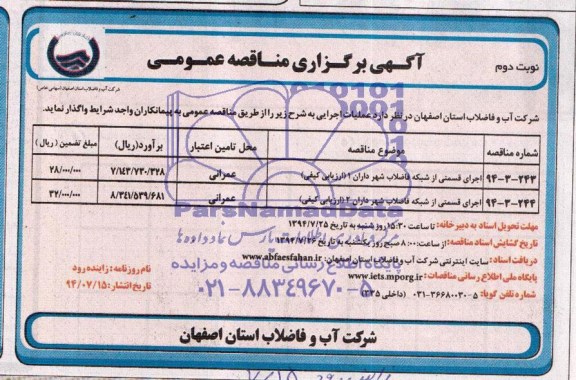 آگهی برگزاری مناقصه عمومی
نوبت دوم
شرکت آب و فاضلاب استان اصفهان (سهامی خاص)
شرکت آب و فاضلاب استان اصفهان در نظر دارد عملیات اجرایی به شرح زیر را از طریق مناقصه عمومی به پیمانکاران واجد شرایط واگذار نماید.
شماره مناقصه موضوع مناقصه محل تامین اعتبار برآورد(ریال) مبلغ تضمین (ریال)
۹۴-۳-۲۴۳ اجرای قسمتی از شبکه فاضلاب شهر داران ۱ (ارزیابی کیفی) عمرانی ۷/۱۴۳/۷۳۰/۳۲۸ ۲۸۰/۰۰۰/۰۰۰
۹۴-۳-۲۴۴ اجرای قسمتی از شبکه فاضلاب شهر داران ۲ (ارزیابی کیفی) عمرانی ۸/۳۴۱/۵۳۹/۶۸۱ ۳۲۰/۰۰۰/۰۰۰
مهلت تحویل اسناد به دبیرخانه: تا ساعت ۱۵:۳۰ روز شنبه به تاریخ ۱۳۹۴/۷/۲۵
تاریخ گشایش اسناد مناقصه: از ساعت ۸:۰۰ صبح روز یکشنبه به تاریخ ۱۳۹۴/۷/۲۶
دریافت اسناد: سایت اینترنتی شرکت آب و فاضلاب استان اصفهان: www.abfaesfahan.ir
پایگاه ملی اطلاع رسانی مناقصات: www.iets.mporg.ir
شماره تلفن گویا: ۵-۳۶۶۸۰۰۳۰-۰۳۱ (داخلی ۳۳۵)
نام روزنامه: زاینده رود
تاریخ انتشار: ۹۴/۰۷/۱۵
ParsNamadData
پایگاه اطلاع رسانی مناقصه و مزایده
۰۲۱-۸۸۳۴۹۶۷۰-۵
شرکت آب و فاضلاب استان اصفهان